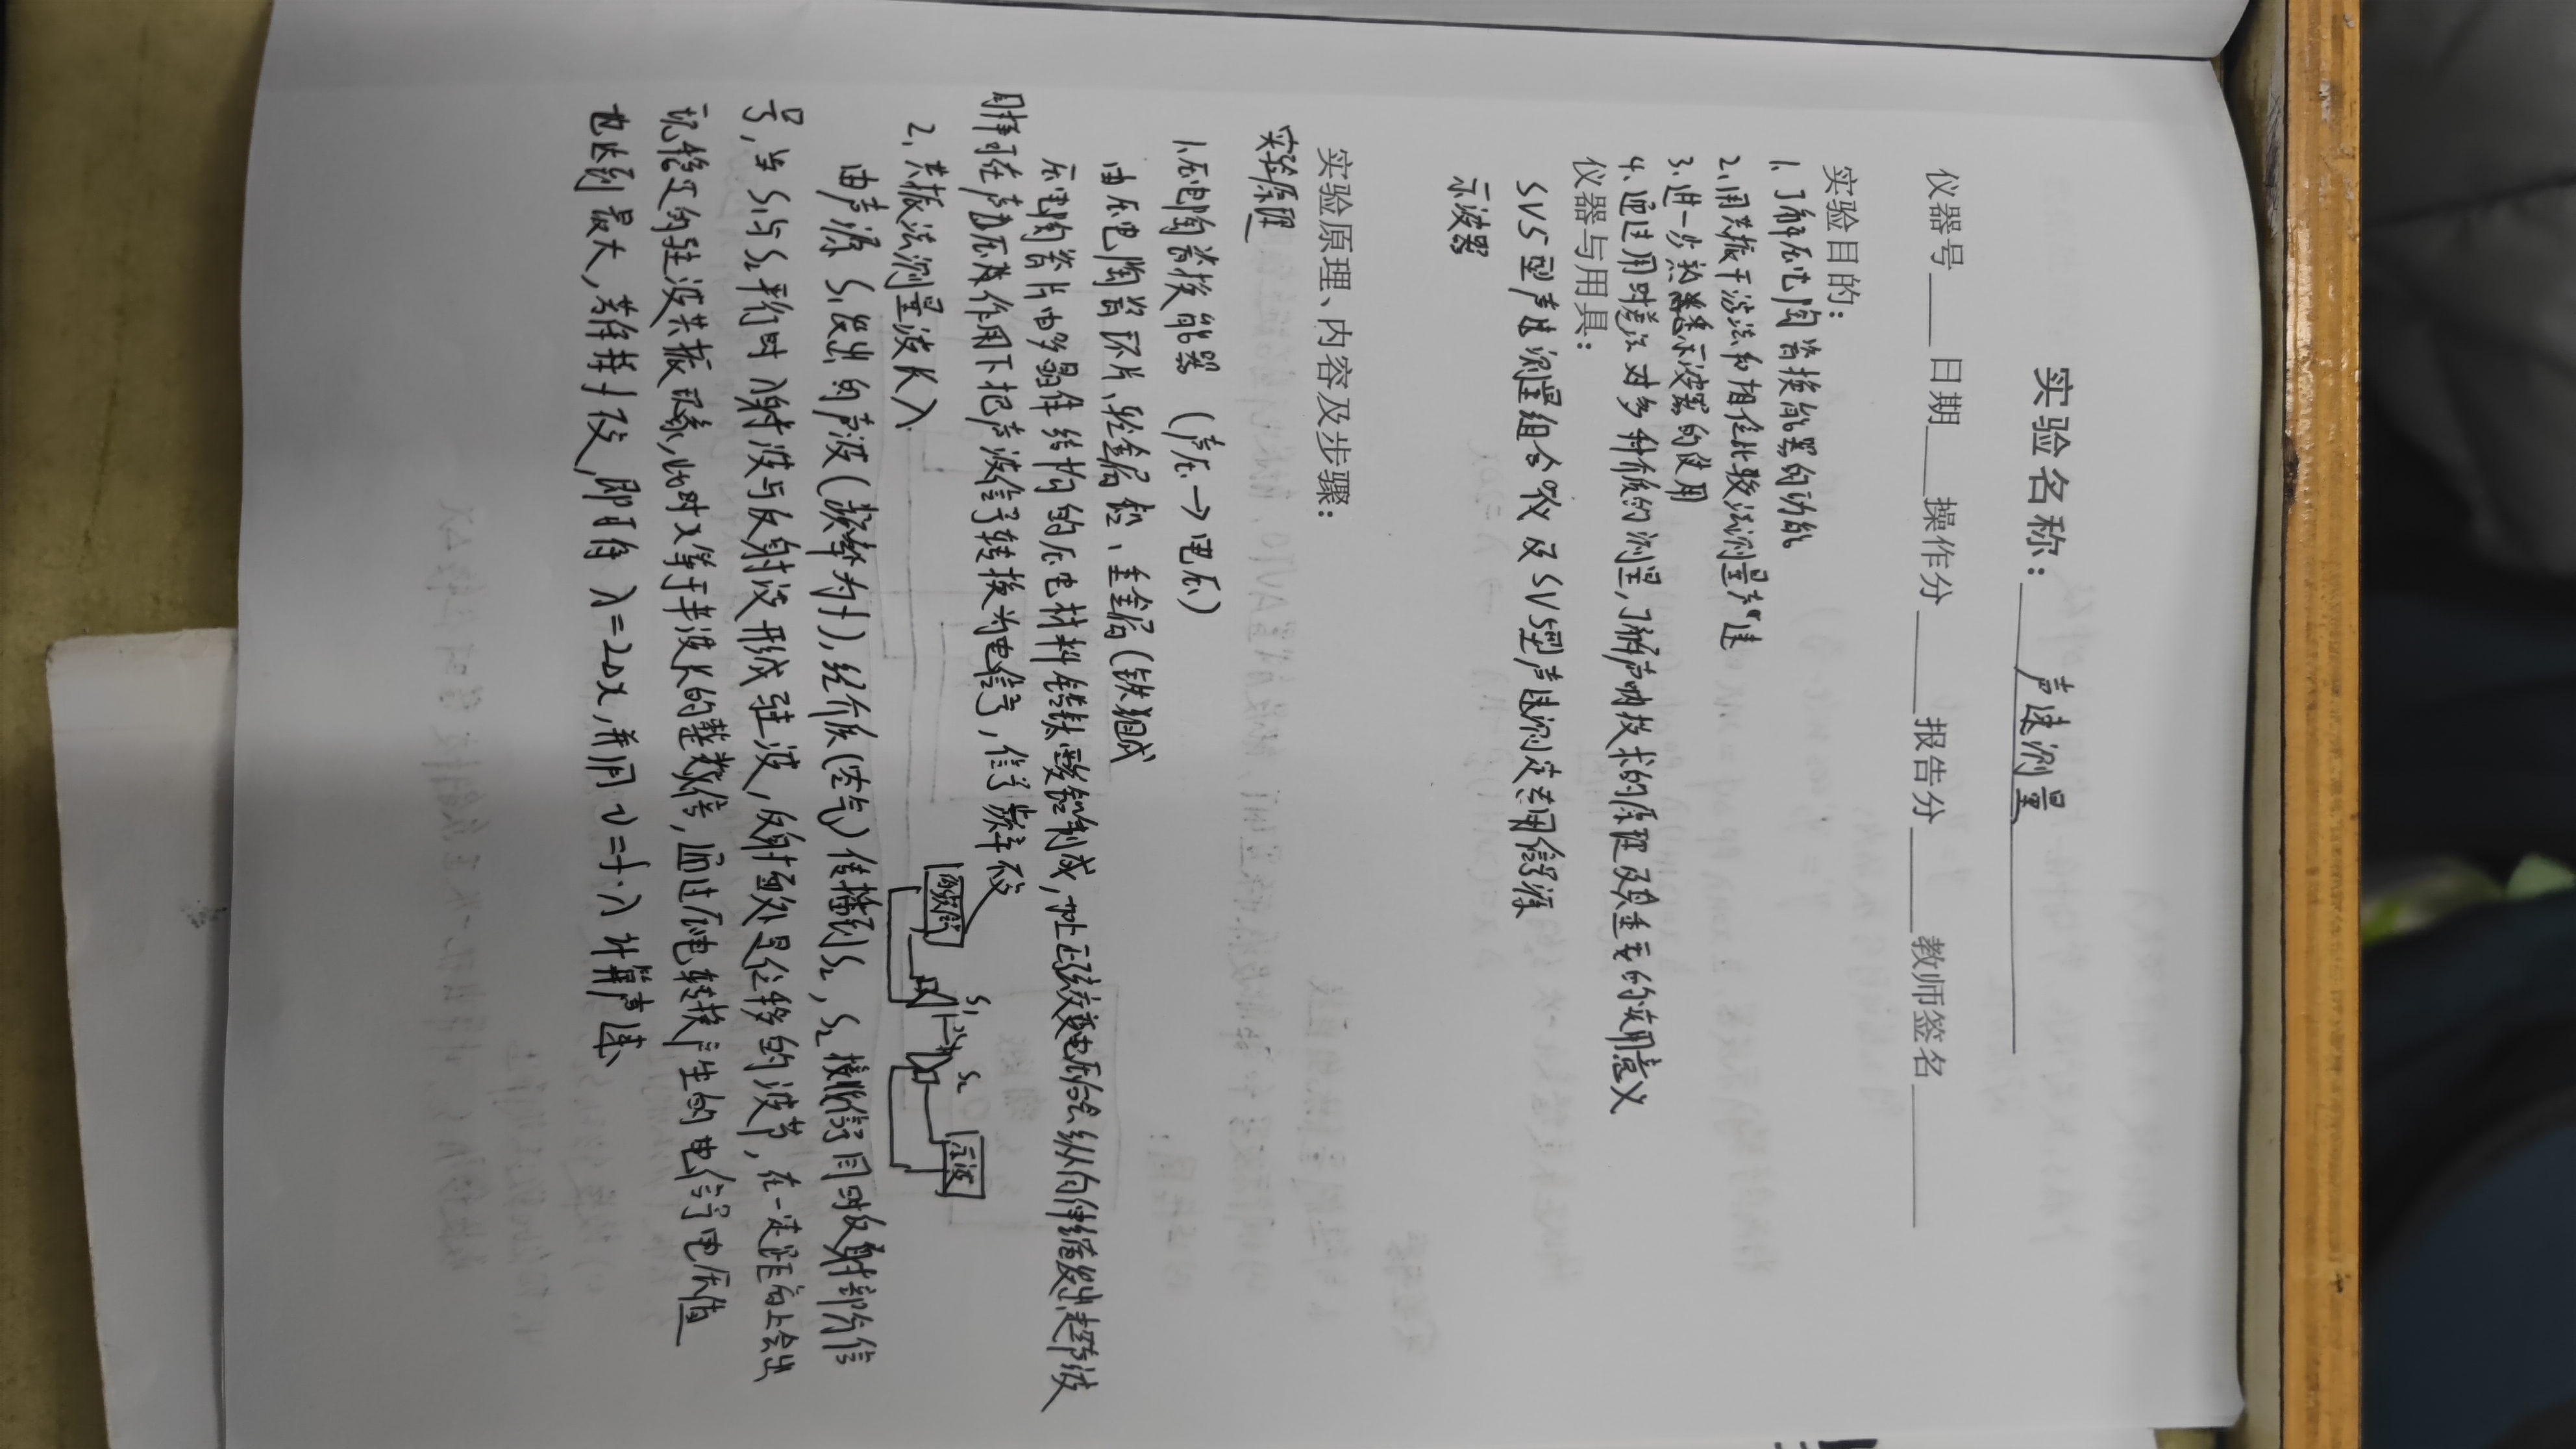 实验名称：声速测量
仪器号____日期____操作分____报告分____教师签名____
实验目的：
1. 了解压电陶瓷换能器的功能
2. 用共振干涉法和相位比较法测量声速
3. 进一步熟悉示波器的使用
4. 通过用时差法对多种介质的测量，了解声呐技术的原理及其重要的实用意义
仪器与用具：
SV5型声速测量组合仪及SV5型声速测定专用信号源
示波器
实验原理、内容及步骤：
实验原理
1. 压电陶瓷换能器（声压→电压）
由压电陶瓷环片、轻金属铝、重金属(铁)组成
压电陶瓷片由多晶体结构的压电材料锆钛酸铅制成，加上正弦交变电压会纵向伸缩发出超声波
同样可在声压作用下把声波信号转换为电信号，信号频率不变
2. 共振法测量波长λ
S1 S2
示波
由声源S1发出的声波（频率为f），经介质(空气)传播到S2，S2接收信号同时反射部分信
号，当S1与S2平行时入射波与反射波形成驻波，反射面处是位移的波节，在一定距离上会出
现稳定的驻波共振现象，此时x等于半波长的整数倍，通过压电转换产生的电信号电压值
也达到最大，若保持f不变，即可得 λ=2Δx，并用 v=f·λ 计算声速